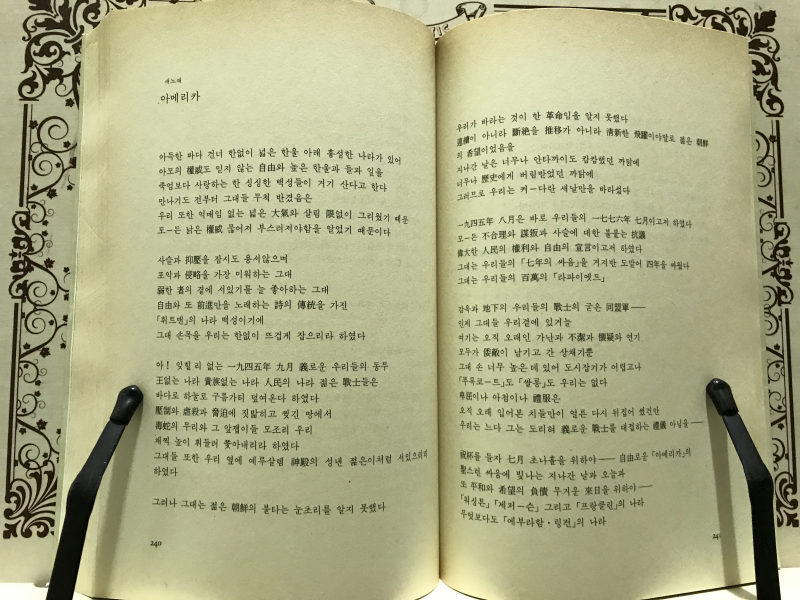 새노래
아메리카
아득한 바다 건너 한없이 넓은 한울 아래 흥성한 나라가 있어
아모의 權威도 믿지 않는 自由와 높은 한울과 들과 일을
죽엄보다 사랑하는 한 싱싱한 백성들이 거기 산다고 한다
만나기도 전부터 그대들 무척 반겼음은
우리 또한 억매임 없는 넓은 大氣와 살림 限없이 그리웠기 때문
모―든 낡은 權威 끊어저 부스러저야함을 알었기 때문이다
사슬과 抑壓을 잠시도 용서않으며
포악과 侵略을 가장 미워하는 그대
弱한 者의 곁에 서있기를 늘 좋아하는 그대
自由와 또 前進만을 노래하는 詩의 傳統을 가진
「휘트맨」의 나라 백성이기에
그대 손목을 우리는 한없이 뜨겁게 잡으리라 하였다
아! 잊힐리 없는 一九四五年 九月 義로운 우리들의 동무
王없는 나라 貴族없는 나라 人民의 나라 젊은 戰士들은
바다로 하눌로 구름가티 덮여온다 하였다
壓制와 虐殺과 脅迫에 짓밟히고 찢긴 땅에서
毒蛇의 무리와 그 알맹이들 모조리 우리
채찍 높이 휘둘러 쫓아내리라 하였다
그대들 또한 우리 옆에 예루살렘 神殿의 성낸 젊은이처럼 서있으리라
하였다
그러나 그대는 젊은 朝鮮의 불타는 눈초리를 알지 못했다
240
우리가 바라는 것이 한 革命임을 알지 못했다
連續이 아니라 斷絶을 推移가 아니라 淸新한 飛躍이야말로 젊은 朝鮮
의 希望이었음을
지나간 날은 너무나 안타까이도 캄캄했던 까닭에
너무나 歷史에게 버림받었던 까닭에
그러므로 우리는 커―다란 새날만을 바라섰다
一九四五年 八月은 바로 우리들의 一七七六年 七月이고저 하였다
모―든 不合理와 謀叛과 사슬에 대한 불붙는 抗議
偉大한 人民의 權利와 自由의 宣言이고저 하였다
그대는 우리들의 「七年의 싸움」을 거지반 도맡어 四年을 싸웠다
그대는 우리들의 百萬의 「라파이엣트」
감옥과 地下의 우리들의 戰士의 굳은 同盟軍――
인제 그대들 우리곁에 있거늘
여기는 오직 오래인 가난과 不潔과 懷疑와 연기
모두가 倭敵이 남기고 간 상채기뿐
그대 손 너무 높은 데 있어 도시잡기가 어렵고나
「푸록코―트」도 「쌍롱」도 우리는 없다
卑屈이나 아첨이나 禮服은
오직 오래 입어본 치들만이 얼른 다시 뒤집어 썼건만
우리는 느다 그는 도리혀 義로운 戰士를 대접하는 禮儀 아님을――
祝杯를 들자 七月 초나흘을 위하야―― 自由로운 「아메리카」의
聖스런 싸움에 빛나는 지나간 날과 오늘과
또 平和와 希望의 負債 무거운 來日을 위하야――
「워싱톤」 「제퍼―슨」 그리고 「프랑클린」의 나라
무엇보다도 「에부라함·링컨」의 나라